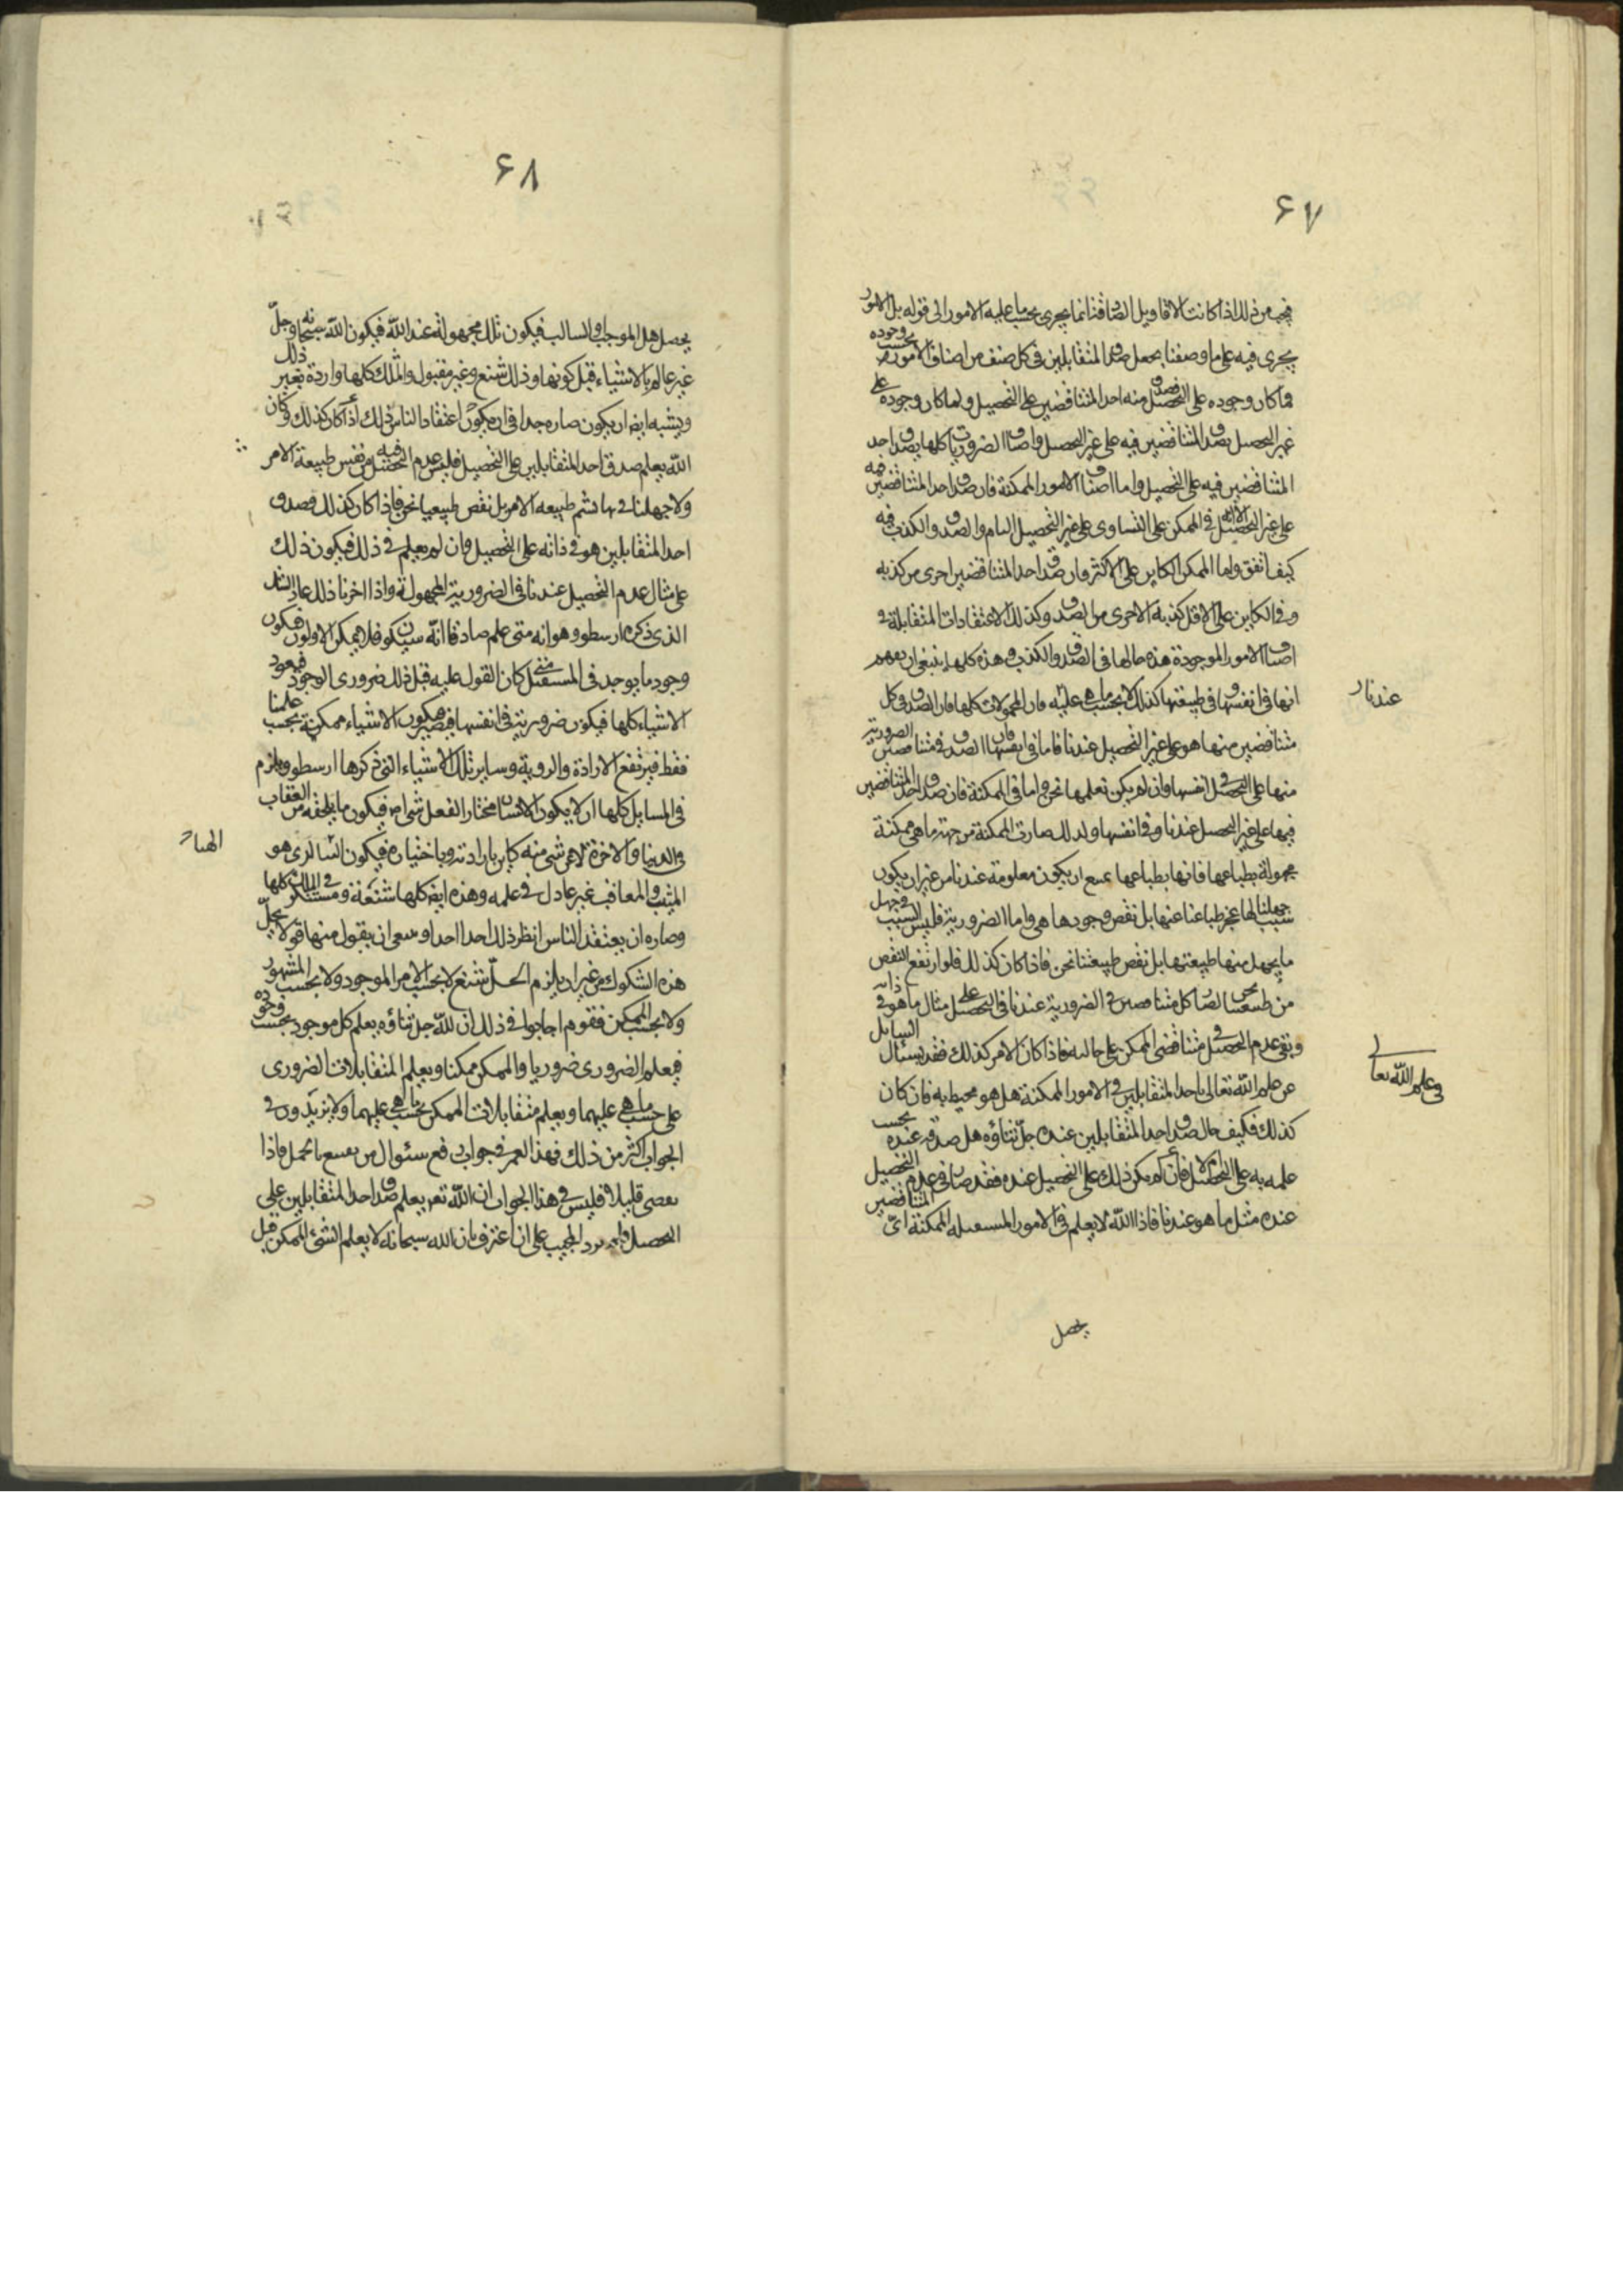 ۶۷
فيجب من ذلك اذا كانت الاقاويل الصادقة انما يجرى بحسب ما عليه الامور الى قوله بل الامور
يجرى فيه على ما وصفنا يجعل صدق المتقابلين فى كل صنف من اصناف الامور بحسب وجوده
فما كان وجوده على التحصيل فصدق منه احد المتناقضين على التحصيل ولما كان وجوده على
غير التحصيل يصدق المتناقضين فيه على غير التحصيل واصناف الضروريات كلها يصدق احد
المتناقضين فيه على التحصيل واما اصناف الامور الممكنة فان صدق احد المتناقضين فيه
على غير التحصيل الا انه فى الممكن على التساوى على غير التحصيل التام والصدق والكذب فيه
كيف اتفق واما الممكن الكاين على الاكثر فان صدق احد المتناقضين احرى من كذبه
وفى الكاين على الاقل كذبه الاحرى من الصدق وكذلك الاعتقادات المتقابلة فى
اصناف الامور الموجودة هذه حالها فى الصدق والكذب وهذه كلها ينبغى ان يفهم
انها فى انفسها وفى طبيعتها كذلك لا بحسب ما هى عليه فان المجهولات كلها فان الصدق فى كل
عندنا
متناقضين منها هو على غير التحصيل عندنا فاما فى انفسها فان الصدق فى متناقضين الضرورية
منها على التحصيل فى انفسها وان لم يكن نعلمها نحن واما فى الممكنة فان صدق احد المتناقضين
فيها على غير التحصيل عندنا وفى انفسها ولذلك صارت الممكنة من جهة ما هى ممكنة
مجهولة بطباعها فانها بطباعها يمتنع ان يكون معلومة عندنا من غير ان يكون
سبب جهلنا لها عجز طباعنا عنها بل نقص وجودها هى واما الضرورية فليس السبب فى جهل
ما يجهل منها طبيعتها بل نقص طبيعتنا نحن فاذا كان كذلك فلو ارتفع النقص
من طبيعتنا نحن لصار كل متناقضين فى الضرورية عندنا فى التحصيل على مثال ما هو فى ذاته
وبقى عدم التحصيل فى متناقضى الممكن على حاله فاذا كان الامر كذلك فقد يسئال السايل
فى علم الله تعالى
عن علم الله تعالى باحد المتقابلين فى الامور الممكنة هل هو محيط به فان كان
كذلك فكيف حال صدق احد المتقابلين عنده جل ثناؤه هل صدقه عنده بحسب
علمه به على التحصيل ام لا فان لم يكن ذلك على التحصيل عنده فقد صار فى عدم التحصيل
عنده مثل ما هو عندنا فاذا الله لا يعلم فى الامور المستقبلة الممكنة اى المتناقضين
يحصل
۶۸
يحصل هل الموجب او السالب فيكون تلك مجهولة عند الله فيكون الله سبحانه وجل
غير عالم بالاشياء قبل كونها وذلك شنع وغير مقبول والملك كلها واردة بغير ذلك
ويشبه ايضا ان يكون ضاره جدا فى ان يكون اعتقاد الناس ذلك اذا كان كذلك وكان
الله يعلم صدق احد المتقابلين على التحصيل فليس عدم التحصيل فيه من نفس طبيعة الامر
ولا جهلنا بها لشئ من طبيعة الامر بل نقص طبيعيا نحن فاذا كان كذلك فصدق
احد المتقابلين هو فى ذاته على التحصيل وان لم يعلم فى ذلك فيكون ذلك
على مثال عدم التحصيل عندنا فى الضرورية المجهولة واذا اخرنا ذلك عاد الشك
الذى ذكره ارسطو وهو انه متى علم صادقا انه سيكون فلا يمكن الا ولون فيكون
وجود ما يوجد فى المستقبل متى كان القول عليه قبل ذلك ضرورى الوجود فيعود
الاشياء كلها فيكون ضرورية فى انفسها فيصير فيكون الاشياء ممكنة بحسب علمنا
فقط فيرتفع الارادة والروية وساير تلك الاشياء التى ذكرها ارسطو ويلزم
فى المسايل كلها ان لا يكون الانسان مختار الفعل شئ اصلا فيكون ما يلحقه من العقاب
فى الدنيا والاخرة لا عن شئ منه كاين بارادته وباختياره فيكون الله الذى هو
المثيب والمعاقب غير عادل فى علمه وهذه ايضا كلها شنعة ومستنكرة فى الملل كلها
وضاره ان يعتقد الناس انظر ذلك احدا احدا وينبغى ان يقول منها قولا يحل
هذه الشكوك من غير ان يلزم الحل شنع لا بحسب الامر الموجود ولا بحسب المشهور
ولا بحسب الممكن فقوم اجابوا فى ذلك ان لله جل ثناؤه يعلم كل موجود بحسب وجوده
فيعلم الضرورى ضروريا والممكن ممكنا ويعلم المتقابلات الضرورى
على حسب ما هى عليهما ويعلم متقابلات الممكن بحسب ما هى عليهما ولا يزيدون فى
الجواب اكثر من ذلك فهذا لعمرى جواب يدفع سئوال من يقنع بالمجمل فاذا
تعصى قليلا فليس فى هذا الجواب ان الله تعالى يعلم صدق احد المتقابلين على
التحصيل ولم يرد المجيب على ان اعترف بان الله سبحانه لا يعلم الشئ الممكن قبل